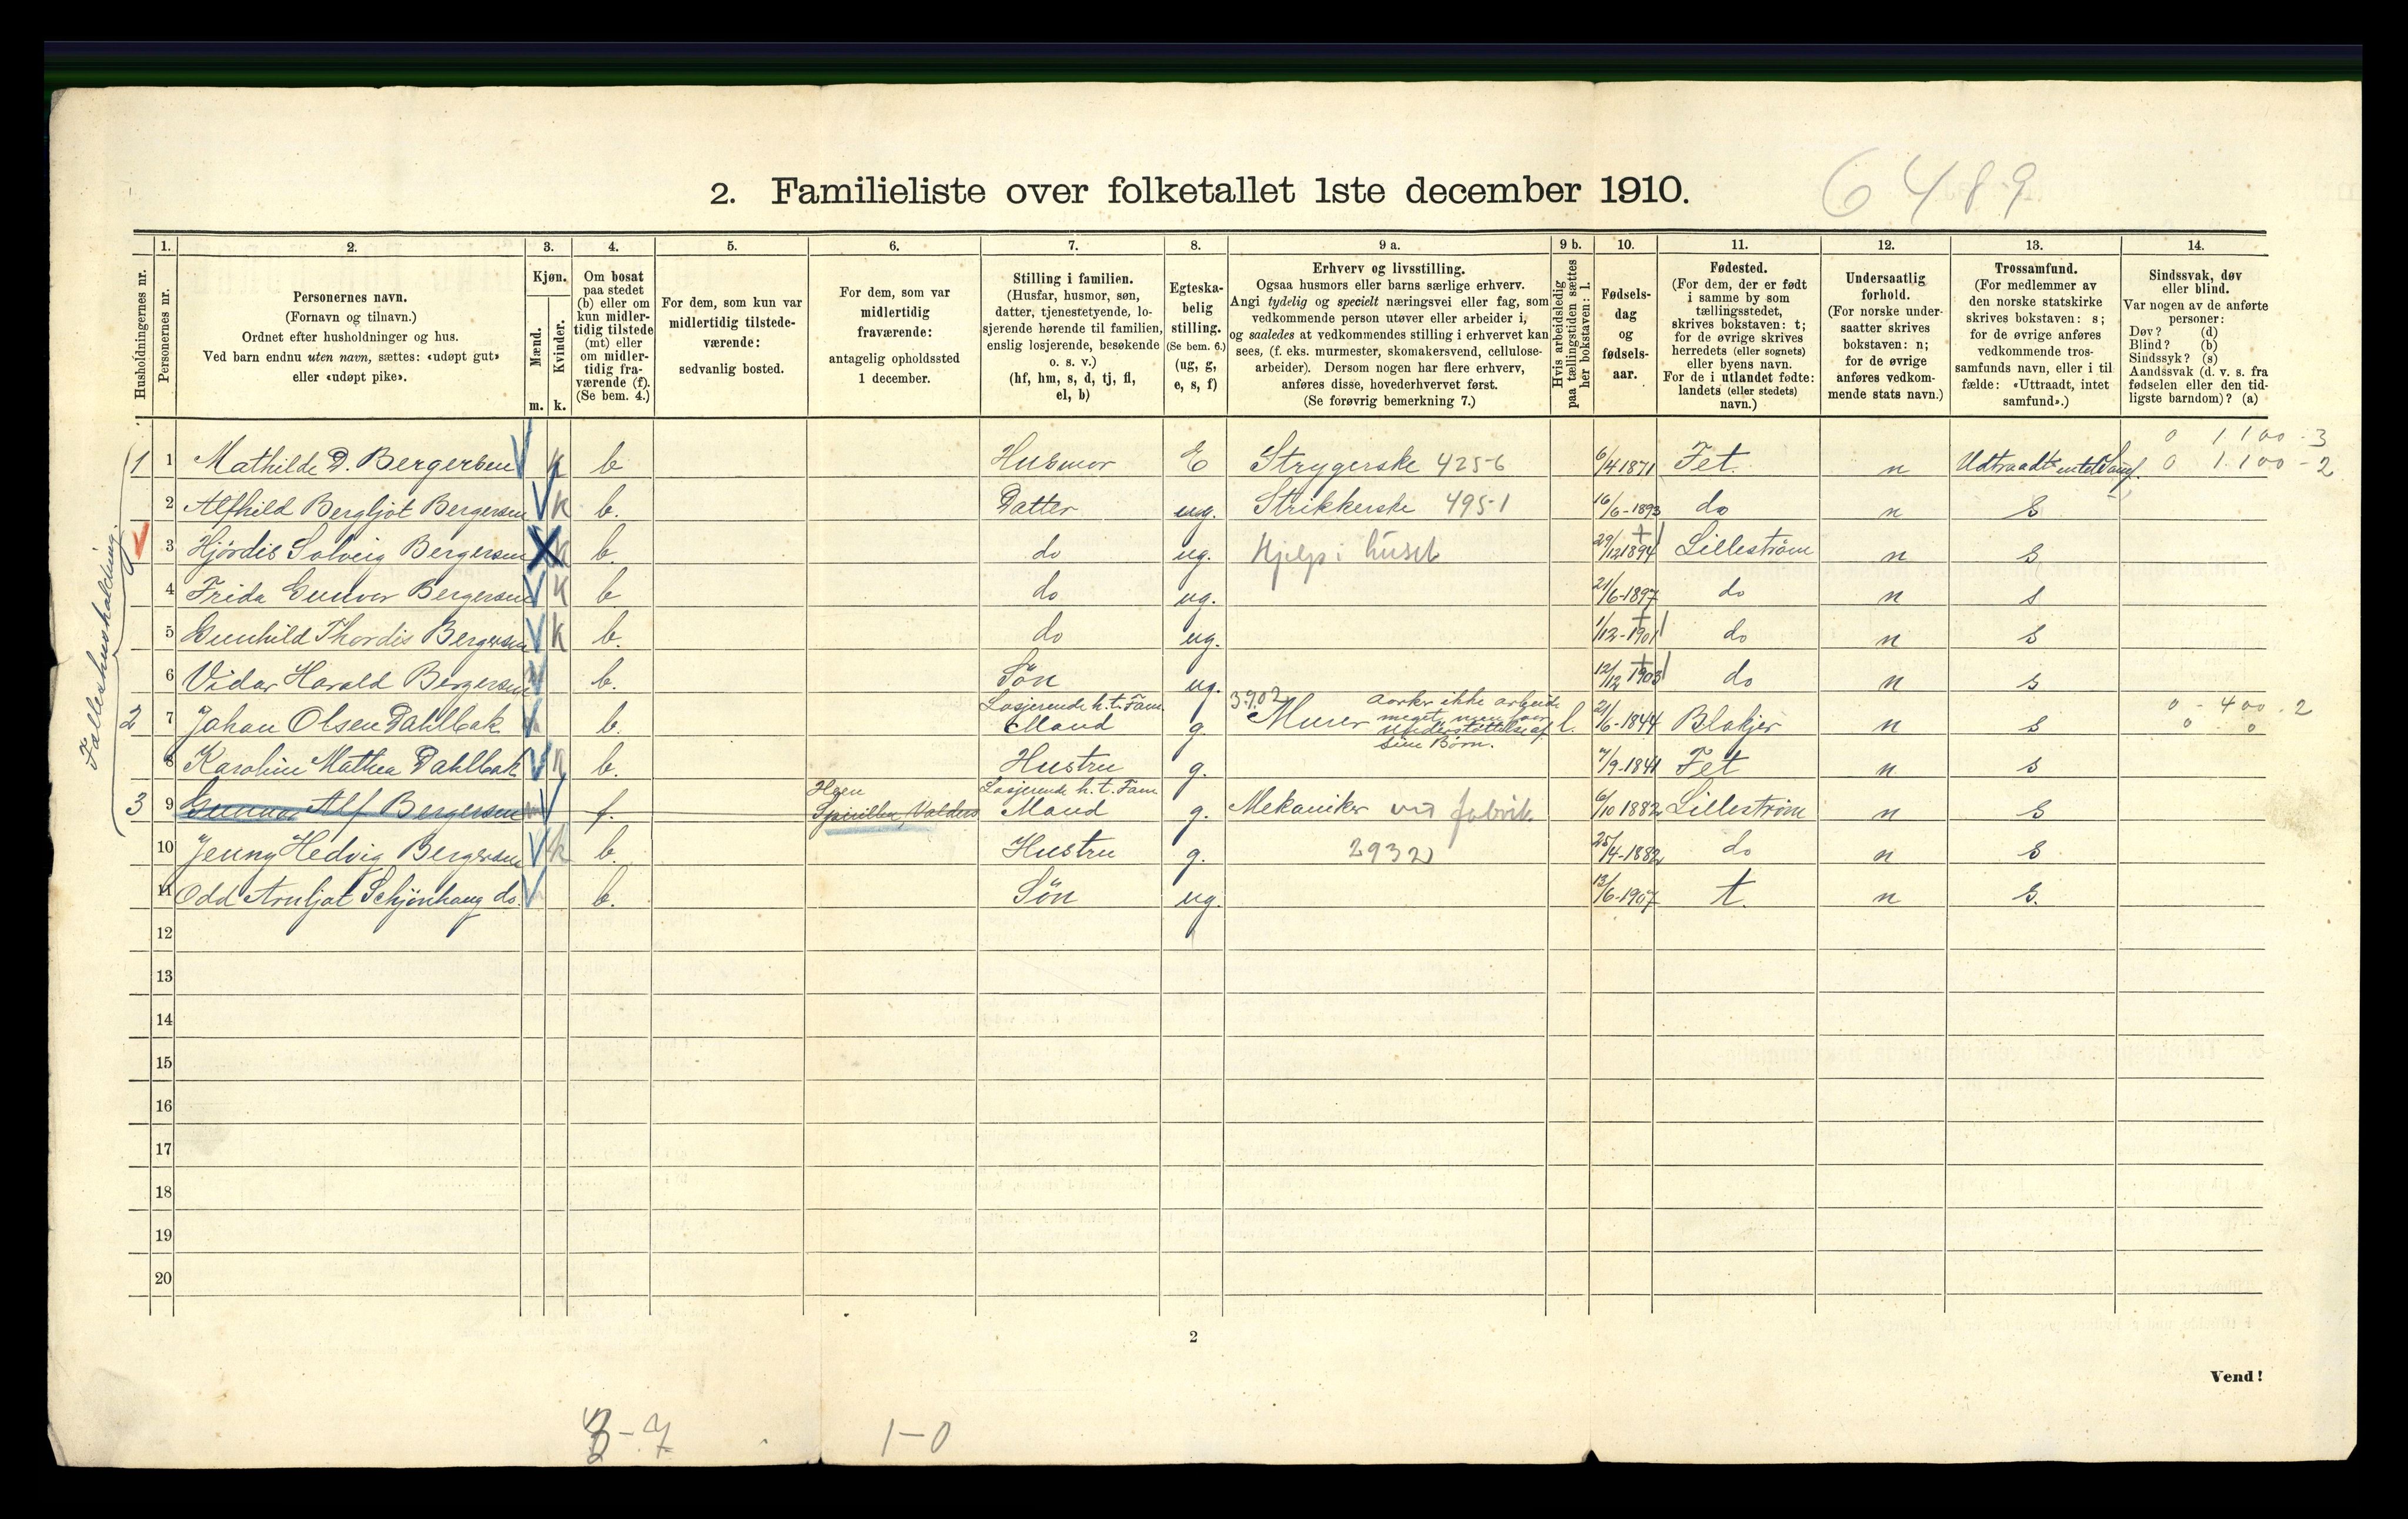 2. Familieliste over folketallet 1ste december 1910.
6489
Husholdningernes nr.
1.
Personernes nr.
2.
Personernes navn.
(Fornavn og tilnavn.)
Ordnet efter husholdninger og hus.
Ved barn endnu uten navn, sættes: «udøpt gut»
eller «udøpt pike».
3.
Kjøn.
Mænd.
m.
Kvinder.
k.
4.
Om bosat
paa stedet
(b) eller om
kun midler-
tidig tilstede
(mt) eller
om midler-
tidig fra-
værende (f).
(Se bem. 4.)
5.
For dem, som kun var
midlertidig tilstede-
værende:
sedvanlig bosted.
6.
For dem, som var
midlertidig
fraværende:
antagelig opholdssted
1 december.
7.
Stilling i familien.
(Husfar, husmor, søn,
datter, tjenestetyende, lo-
sjerende hørende til familien,
enslig losjerende, besøkende
o. s. v.)
(hf, hm, s, d, tj, fl,
el, b)
8.
Egteska-
belig
stilling.
(Se bem. 6.)
(ug, g,
e, s, f)
9 a.
Erhverv og livsstilling.
Ogsaa husmors eller barns særlige erhverv.
Angi tydelig og specielt næringsvei eller fag, som
vedkommende person utøver eller arbeider i,
og saaledes at vedkommendes stilling i erhvervet kan
sees, (f. eks. murmester, skomakersvend, cellulose-
arbeider). Dersom nogen har flere erhverv,
anføres disse, hovederhvervet først.
(Se forøvrig bemerkning 7.)
9 b.
Hvis arbeidsledig
paa tællingstiden sættes
her bokstaven: l.
10.
Fødsels-
dag
og
fødsels-
aar.
11.
Fødested.
(For dem, der er født
i samme by som
tællingsstedet,
skrives bokstaven: t;
for de øvrige skrives
herredets (eller sognets)
eller byens navn.
For de i utlandet fødte:
landets (eller stedets)
navn.)
12.
Undersaatlig
forhold.
(For norske under-
saatter skrives
bokstaven: n;
for de øvrige
anføres vedkom-
mende stats navn.)
13.
Trossamfund.
(For medlemmer av
den norske statskirke
skrives bokstaven: s;
for de øvrige anføres
vedkommende tros-
samfunds navn, eller i til
fælde: «Uttraadt, intet
samfund».)
14.
Sindssvak, døv
eller blind.
Var nogen av de anførte
personer:
Døv? (d)
Blind? (b)
Sindssyk? (s)
Aandssvak (d. v. s. fra
fødselen eller den tid-
ligste barndom)? (a)
Fælleshusholdning
0 1.100 - 3
1 1 Mathilde D. Bergersen k b Husmor E Strygerske 425-6 6/4 1871 Fet n Udtraadt intet Samf. 0 1.100 - 2
2 Alfhild Bergljot Bergersen k b. Datter ug. Strikkerske 495-1 16/6-1893 do n s
3 Hjørdis Solveig Bergersen k b. do ug. Hjelp i huset 29/12 1894 Lillestrøm n s
4 Frida Gunvor Bergersen k b do ug. 21/6-1897 do n s
5 Gunhild Thordis Bergersen k b. do ug. 1/12-1901 do n s
6 Vidar Harald Bergersen b. Søn ug. 12/12 1903 do n s
Losjerende h. t. Fam. 3902 aarker ikke arbeide 0 - 400 - 2
2 7 Johan Olsen Dahlbak b. Mand g. Murer meget, men l. 21/6-1844 Blakjer n s 0 - 0
understøttelse af
sine Børn.
8 Karoline Mathea Dahlbak k b. Hustru g. 7/9-1841 Fet n s
Heen Losjerende h. t. Fam.
3 9 Gunnar Alf Bergersen m f. Spirillen, Valders Mand g. Mekaniker ved fabrik 6/10 1882 Lillestrøm n s
10 Jenny Hedvig Bergersen k b. Hustru g. 2932 25/4-1882 do n s
11 Odd Arnljot Schjønhaug do. b. Søn ug. 13/6-1907 t. n s.
12
13
14
15
16
17
18
19
20
2
Vend!
3-7 1-0